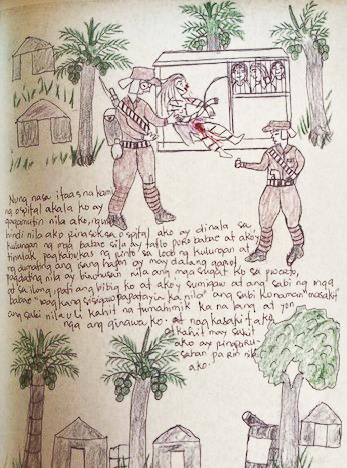 Nung nasa itaas na kami
ng ospital akala ko ay
gagamutin nila ako, iyon
hindi nila ako pinasok sa ospital ako ay dinala sa
kulungan ng mga babae sila ay tatlo puro babae at ako'y
tinulak pagkabukas ng pinto sa loob ng kulungan at
ng dumating ang isang hapon ay may dalang gamot
pagdating nila ay binuhusan nila ang mga sugat ko sa pwerto,
at sa ilong, pati ang bibig ko at ako'y sumigaw at ang sabi ng mga
babae "wag kang sisigaw papatayin ka nila" ang sabi ko naman "masakit"
ang sabi nila uli kahit na tumahimik ka na lang at yon
nga ang ginawa ko. at nagkasakit ako
at kahit may sakit
ako ay pinapipu-
sahan pa rin nila
ako.